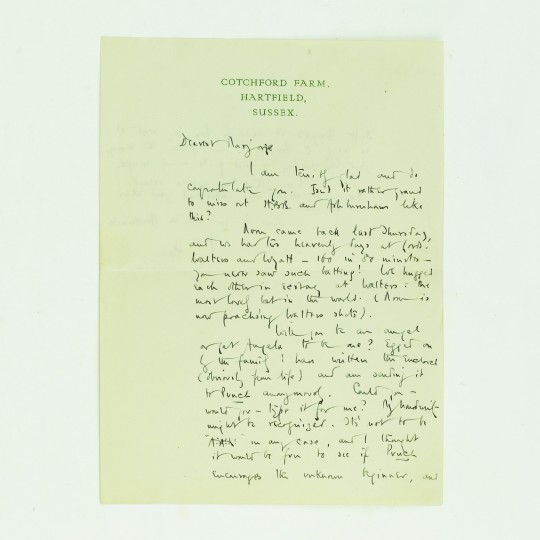 COTCHFORD FARM,
HARTFIELD,
SUSSEX.
Dearest Marjorie
I am terribly glad and do
congratulate you. Isn't it rather grand
to miss out and like
this?
Moon came back last Thursday,
and we had two heavenly days at Lord's.
Walters and Wyatt – 160 in 80 minutes –
you never saw such batting! We hugged
each other in ecstasy at Walters: the
most lovely bat in the world. (Moon is
now practising Walters shots).
Will you be an angel
or get Angela to be one? Egged on
by the family I have written the enclosed
(obviously from life) and am sending it
to Punch anonymously. Could you –
would you – type it for me? My handwriting
might be recognized. It's not to be
in any case, and I thought
it would be fun to see if Punch
encourages the unknown beginner, and